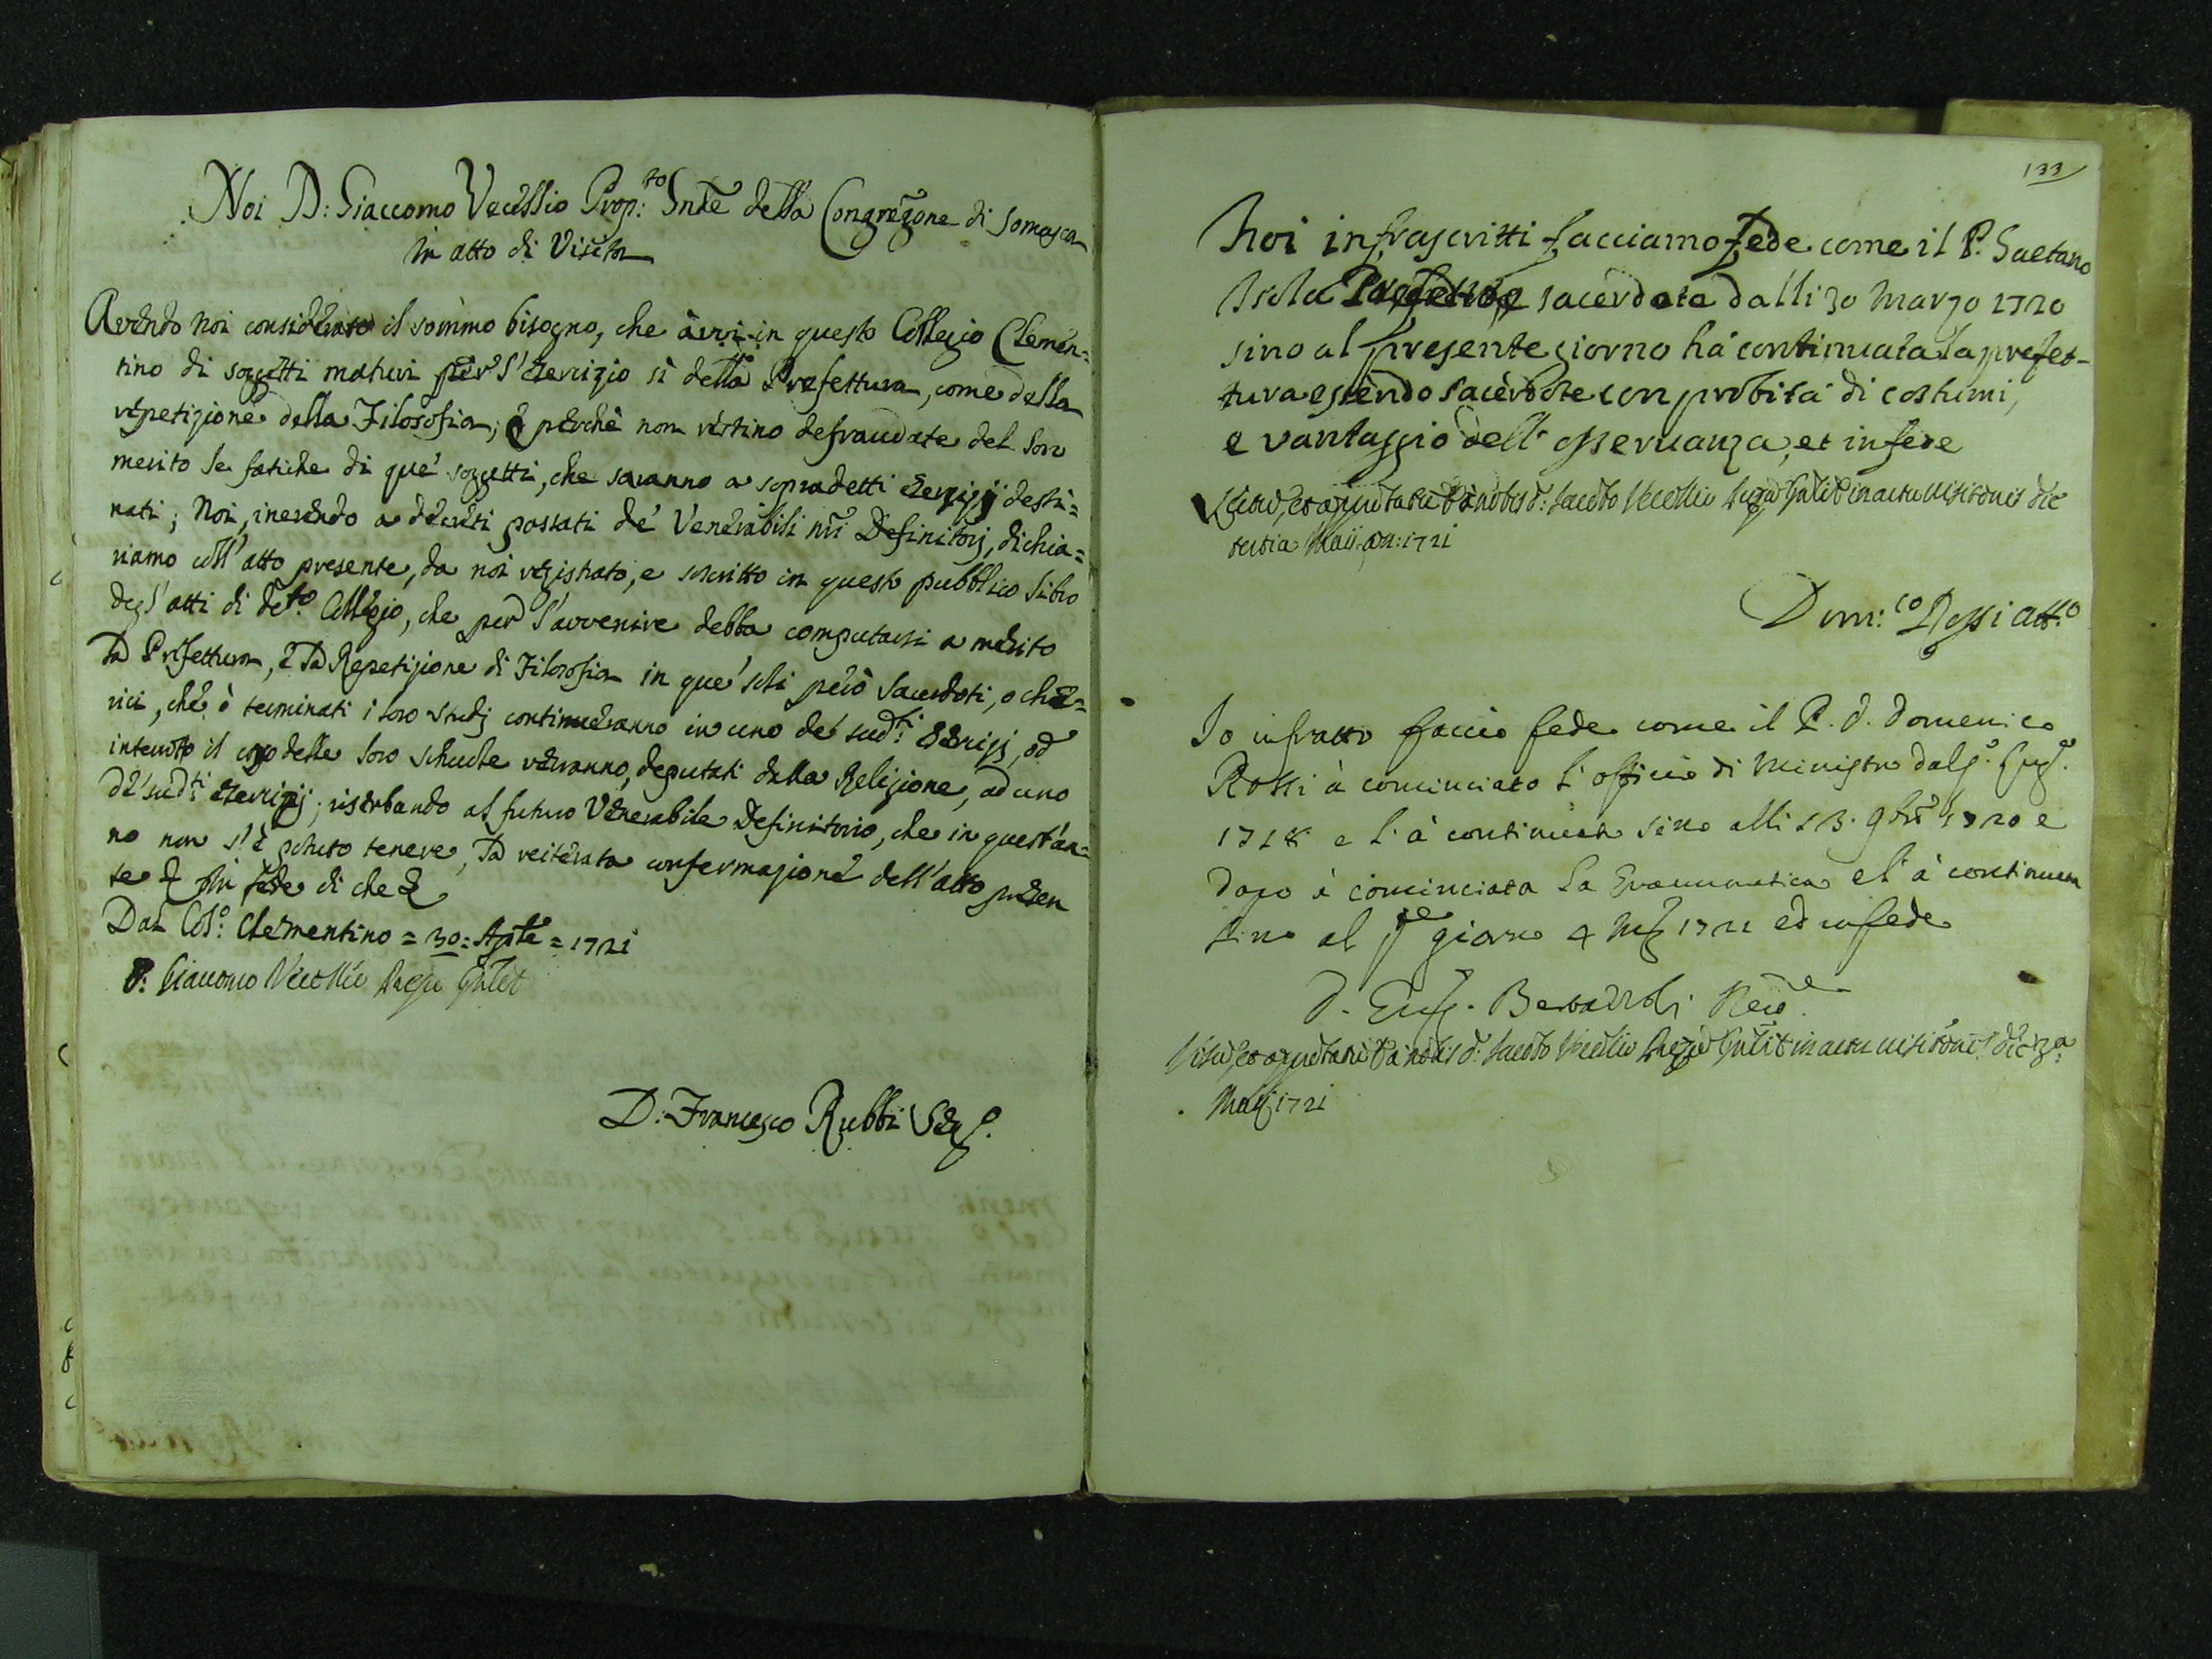 Noi D: Giaccomo Vecellio Prop:to Gnãle della Congregõne di Somasca
in atto di Visita
Avendo noi considerato il sommo bisogno, che àvvi in questo Collegio Clemen=
tino di soggetti maturi per l'esercizio sì della Prefettura, come della
repetizione della Filosofia; e perchè non restino defraudate del loro
merito le fatiche di que' soggetti, che saranno a sopradetti esercizij desti=
nati; Noi, inerendo a decreti passati de' Venerabili nři Definitorj, dichia=
riamo coll'atto presente, da noi registrato, e scritto in questo pubblico libro
degl'atti di deto. Collegio, che per l'avvenire debba computarsi a merito
la Prefettura, e la Repetizione di Filosofia in que' soli però Sacerdoti, o che=
rici, che ò terminati i loro studj continueranno in uno de' sudti. esercizj, od
interrotto il corso delle loro schuole verranno, deputati dalla Religione, ad uno
de' sudti esercizij; riserbando al futuro Venerabile Definitorio, che in quest'an=
no non s'è potuto tenere, la reiterata confermazione dell'atto presen
te & In fede di che &
Dal Col:o Clementino = 30: Aprile = 1721
D: Giacomo Vecellio Prep.to Gnãle
D: Francesco Rubbi Seg.
133
Noi infrascritti facciamo fede come il P. Gaetano
Isola sacerdote dalli 30 Marzo 1720
sino al presente giorno hà continuata la prefet-
tura essendo sacerdote con probità di costumi,
e vantaggio dell'osservanza, et in fede
D: Jacobo Vecellio in actu visitõnis die
tertia Maii an: 1721
Dom:co Rossi Att.o
Io infratto faccio fede come il P. d. Domenico
Rossi à cominciato l'officio di Ministro
1718 e l'à continuato sino alli 13. 9bre 1720 e
dopo à cominciata la Grammatica e l'à continuata
sino al pñte giorno 4 Mag 1721 ed in fede
D. Re
D: Jacobo Vecellio in actu visitõnis die 3a
Maij 1721